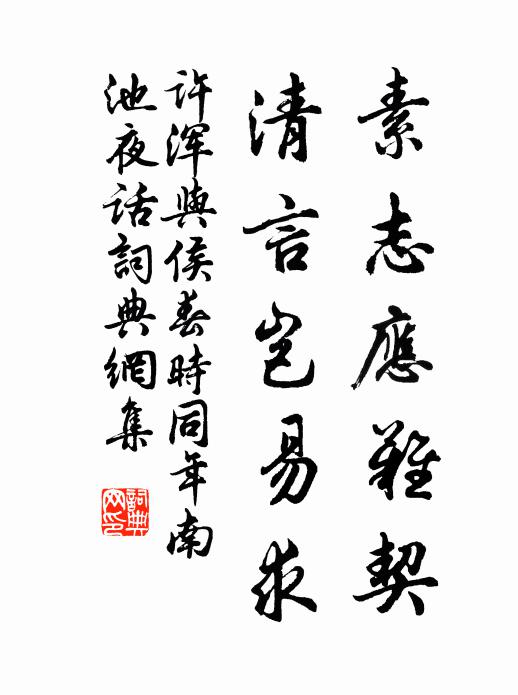 素志應難契
清言豈易求
許渾與侯春時同年南
池夜話詞典網集
詞典网印